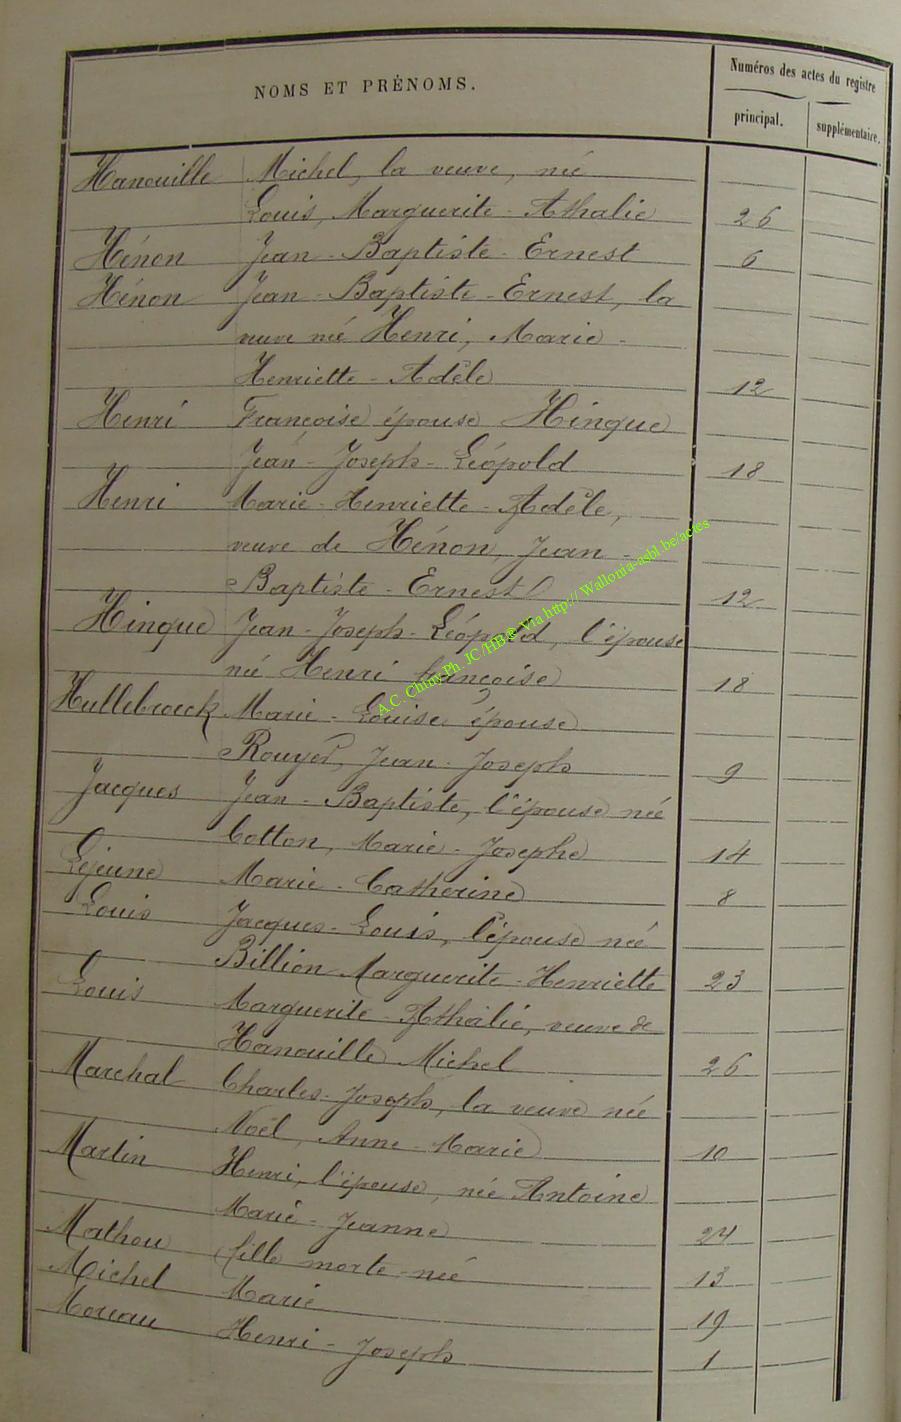 NOMS ET PRÉNOMS.
Numéros des actes du registre
principal.
supplémentaire.
Hanouille Michel, la veuve, née
Louis, Marguerite-Athalie 26
Hénon Jean-Baptiste-Ernest 6
Hénon Jean-Baptiste-Ernest, la
veuve née Henri, Marie-
Henriette-Adèle 12
Henri Françoise épouse Hinque
Jean-Joseph-Léopold 18
Henri Marie-Henriette-Adèle,
veuve de Hénon, Jean-
Baptiste-Ernest 12
Hinque Jean-Joseph-Léopold, l'épouse
née Henri françoise 18
Hullebroeck Marie-Louise épouse
Rouyer, Jean-Joseph 9
Jacques Jean-Baptiste, l'épouse née
Cotton, Marie-Josephe 14
Lejeune Marie-Catherine 8
Louis Jacques-Louis, l'épouse née
Billion Marguerite-Henriette 23
Louis Marguerite-Athalie, veuve de
Hanouille Michel 26
Marchal Charles-Joseph, la veuve née
Noël, Anne-Marie 10
Martin Henri, l'épouse, née Antoine
Marie-Jeanne 24
Mathou fille morte-née 13
Michel Marie 19
Moreau Henri-Joseph 1
A.C. Chiny Ph. JC/HB@ Via http:// Wallonia-asbl.be/actes